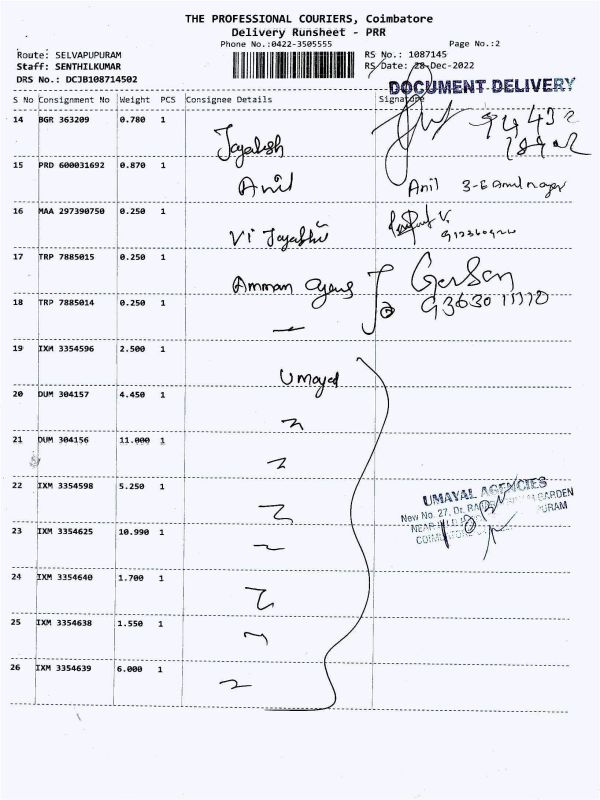 THE PROFESSIONAL COURIERS, Coimbatore
Delivery Runsheet - PRR
Phone No.:0422-3505555 Page No.:2
Route: SELVAPUPURAM RS No.: 1087145
Staff: SENTHILKUMAR RS Date: 28-Dec-2022
DRS No.: DCJB108714502
DOCUMENT DELIVERY
S No Consignment No Weight PCS Consignee Details Signature
14 BGR 363209 0.780 1
15 PRD 600031692 0.870 1 Anil Anil
16 MAA 297390750 0.250 1
17 TRP 7885015 0.250 1 Amman
18 TRP 7885014 0.250 1
19 IXM 3354596 2.500 1 Umayal
20 DUM 304157 4.450 1
21 DUM 304156 11.000 1
22 IXM 3354598 5.250 1
UMAYAL AGENCIES
New No. 27, Dr. GARDEN
23 IXM 3354625 10.990 1
24 IXM 3354640 1.700 1
25 IXM 3354638 1.550 1
26 IXM 3354639 6.000 1